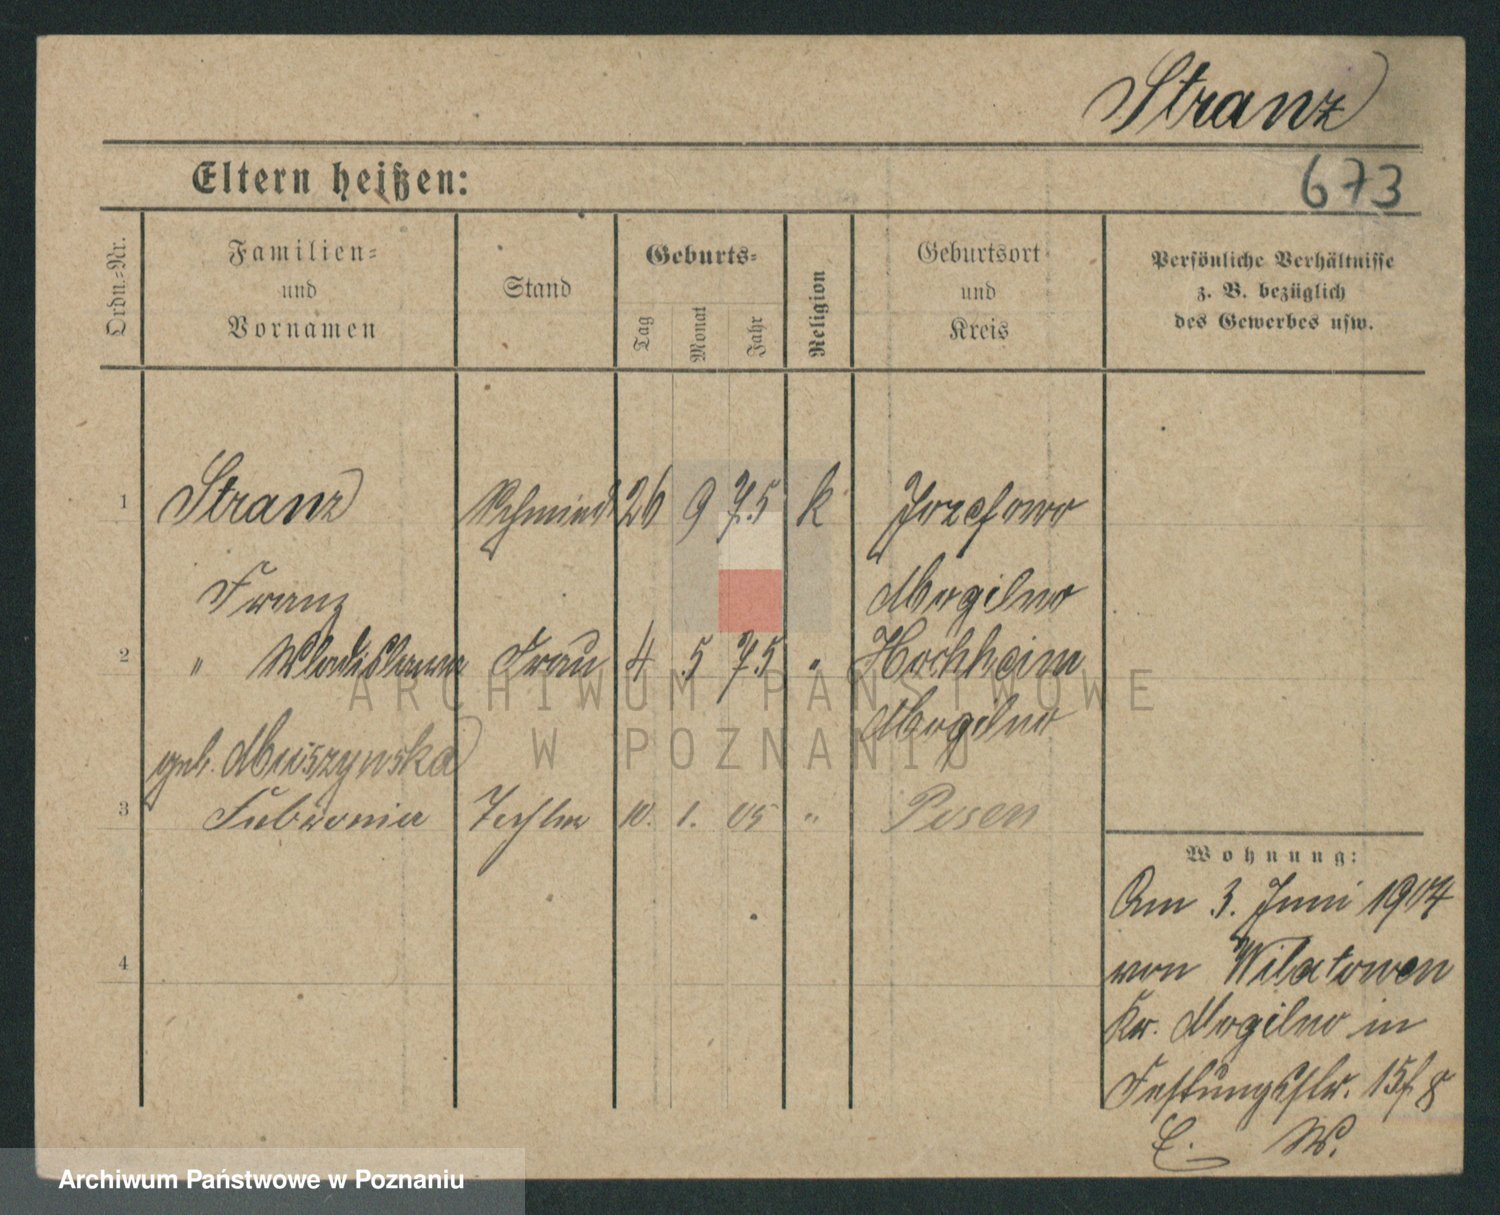 Stranz
Eltern heißen:
673
Ordn.-Nr.
Familien- und Vornamen
Stand
Geburts-
Tag
Monat
Jahr
Religion
Geburtsort und Kreis
Persönliche Verhältnisse
z. B. bezüglich
des Gewerbes usw.
1 Stranz Schmied 26 9 75 k Jozefowo
Franz Mogilno
2 " Wladislawa Frau 4 5 75 " Hochheim
Mogilno
geb. Muszynska
3 Febronia Tochter 10. 1. 05 " Posen
4
Wohnung:
Am 3. Juni 1904
von Wilatowen
Kr. Mogilno in
Festungsstr. 15
W.
ARCHIWUM PAŃSTWOWE
W POZNANIU
Archiwum Państwowe w Poznaniu